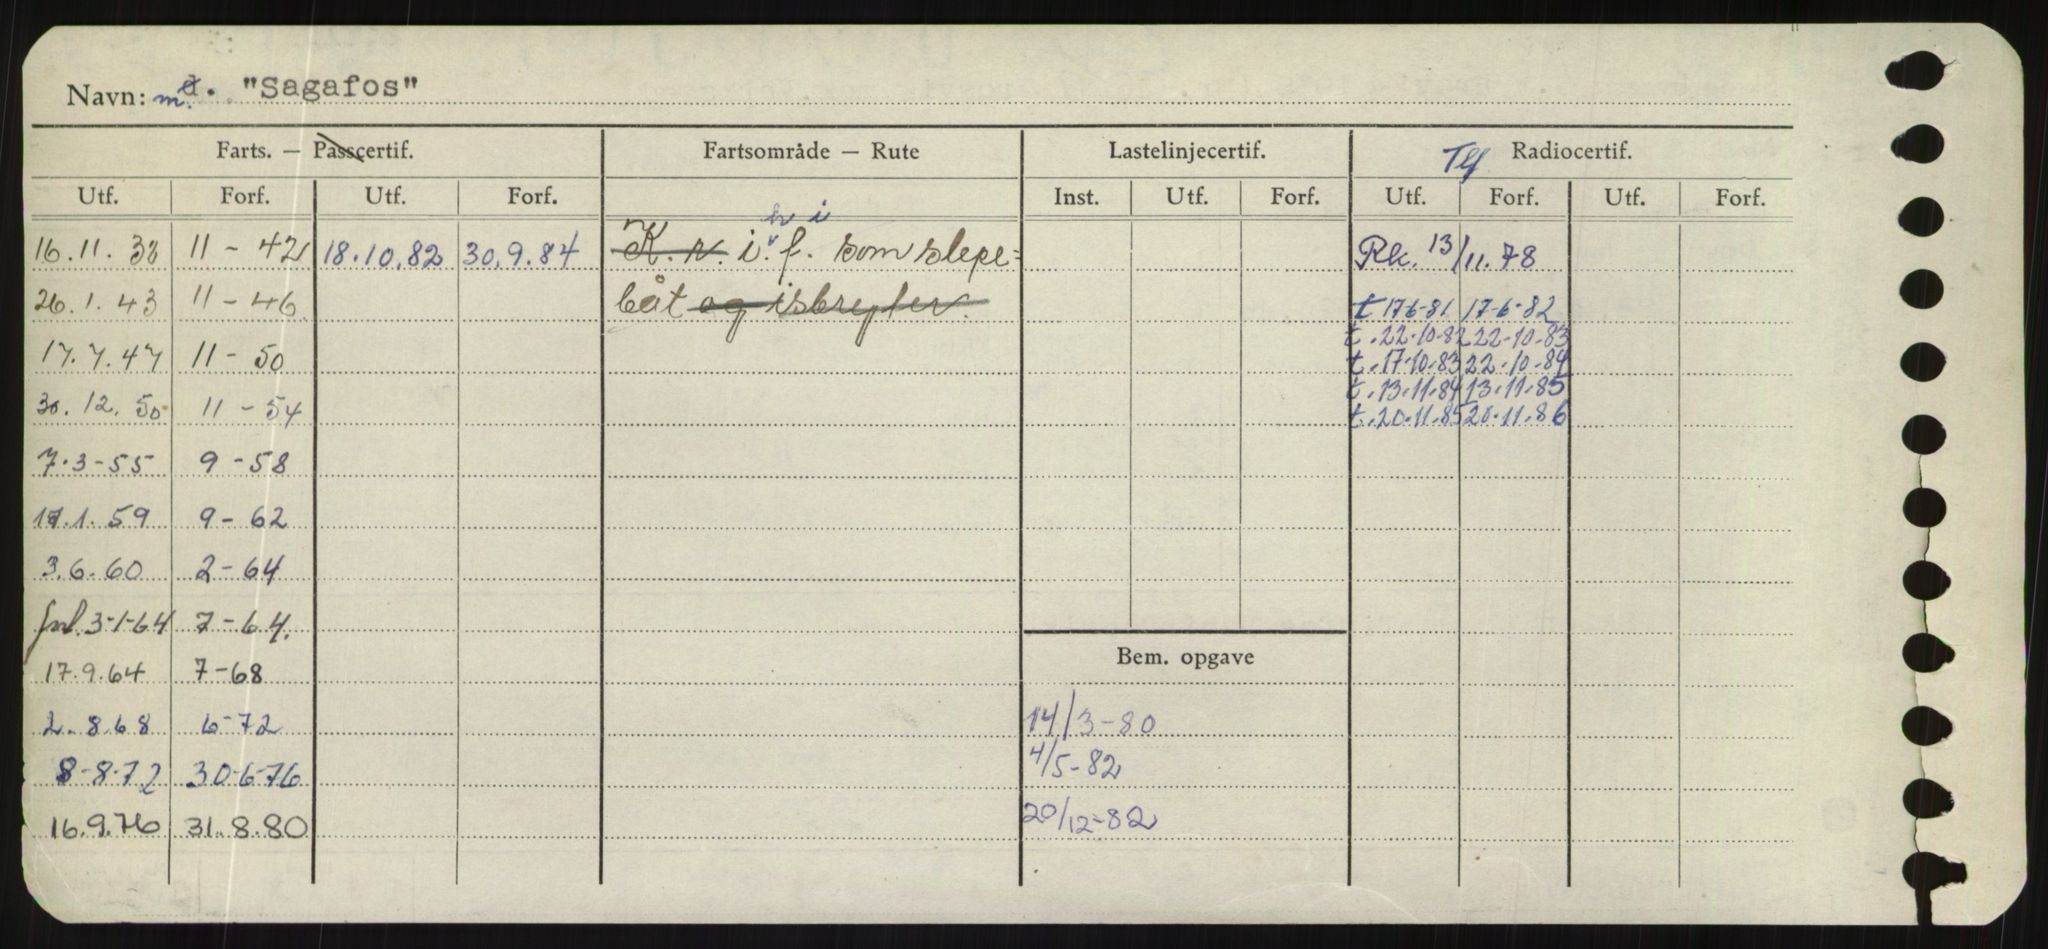 Navn: m. "Sagafos"
Farts. — Passcertif. Fartsområde — Rute Lastelinjecertif. Tlf Radiocertif.
Utf. Forf. Utf. Forf. Inst. Utf. Forf. Utf. Forf. Utf. Forf.
16.11.38 11 - 42 18.10.82 30.9.84 K.v. i.f. som slepe= Rk. 13/11.78
26.1.43 11 - 46 båt og isbryter. t 17-6-81 17-6-82
t. 22-10-82 22-10-83
17.7.47 11 - 50 t. 17-10-83 22-10-84
t. 13.11.84 13.11.85
30.12.50 11 - 54 t. 20.11.85 20.11.86
7.3-55 9 - 58
1.59 9 - 62
3.6.60 2 - 64
3-1-64 7 - 64.
17.9.64 7-68
Bem. opgave
2.8.68 6-72 14/3-80
8-8-72 30-6-76 4/5-82
16.9.76 31.8.80 20/12-82